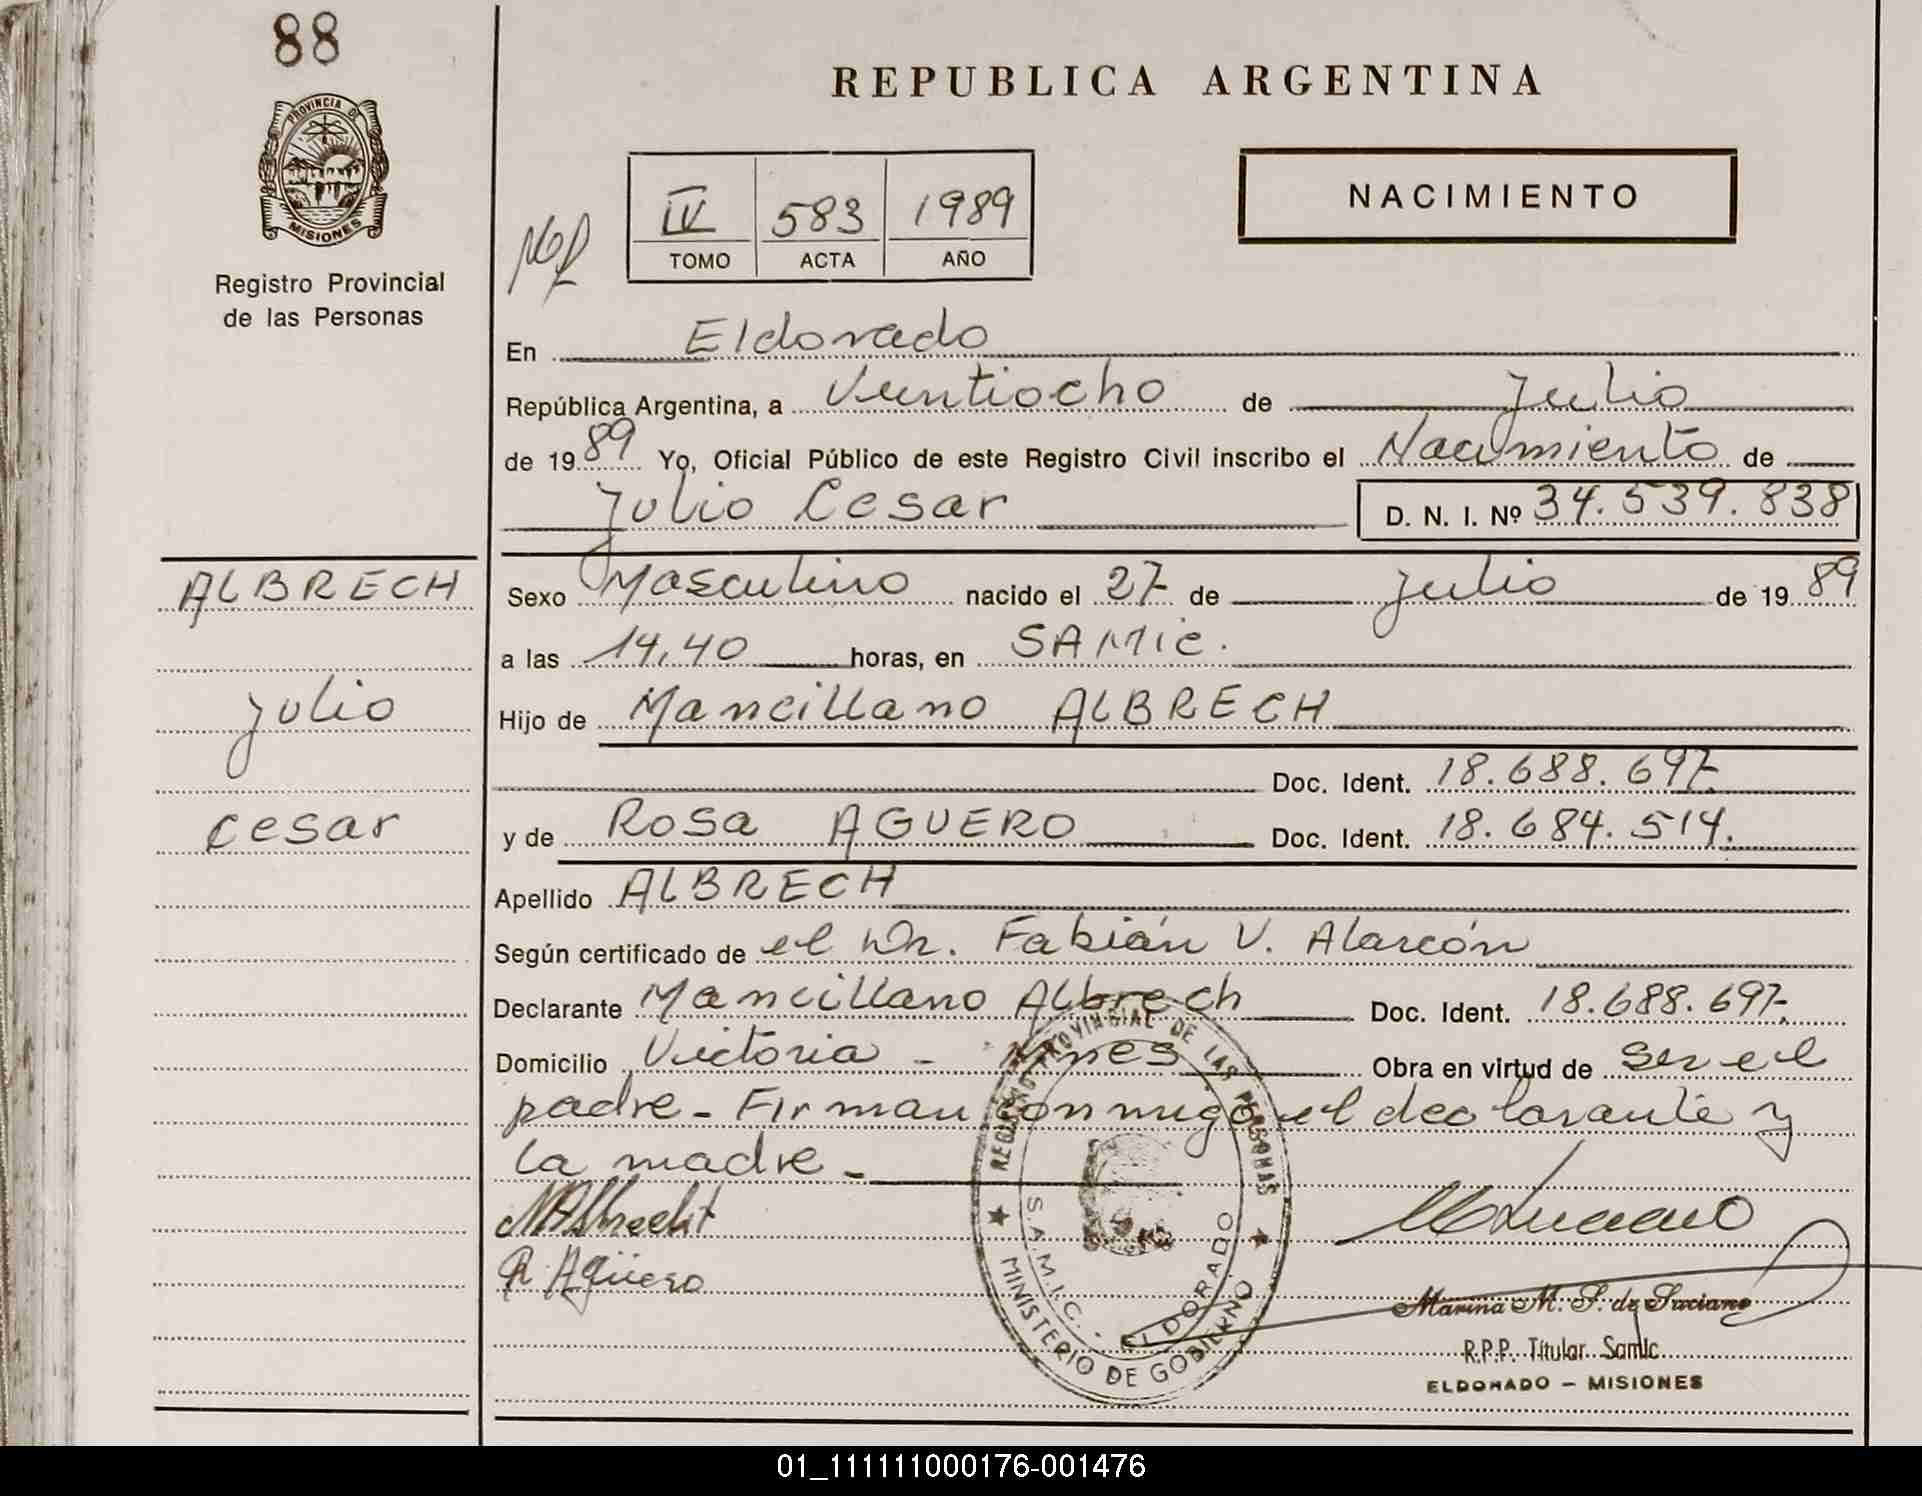 88
PROVINCIA DE
MISIONES
Registro Provincial
de las Personas
ALBRECH
Julio
Cesar
REPUBLICA ARGENTINA
NACIMIENTO
IV 583 1989
TOMO ACTA AÑO
En Eldorado
República Argentina, a Veintiocho de Julio
de 1989 Yo, Oficial Público de este Registro Civil inscribo el Nacimiento de
Julio Cesar D. N. I. Nº 34.539.838
Sexo Masculino nacido el 27 de Julio de 1989
a las 14,40 horas, en SAMic.
Hijo de Marcillano ALBRECH
Doc. Ident. 18.688.697.
y de Rosa AGUERO Doc. Ident. 18.684.514.
Apellido ALBRECH
Según certificado de el Dr. Fabián V. Alarcón
Declarante Marcillano Albrech Doc. Ident. 18.688.697.
Domicilio Victoria - Mnes Obra en virtud de ser el
padre - Firman conmigo el declarante y
la madre -
MAlbrecht
R Agüero
REGISTRO PROVINCIAL DE LAS PERSONAS
S.A.M.I.C. - ELDORADO
MINISTERIO DE GOBIERNO
Marina M. S. de Luciano
R.P.P. Titular Samic
ELDORADO - MISIONES
01_111111000176-001476